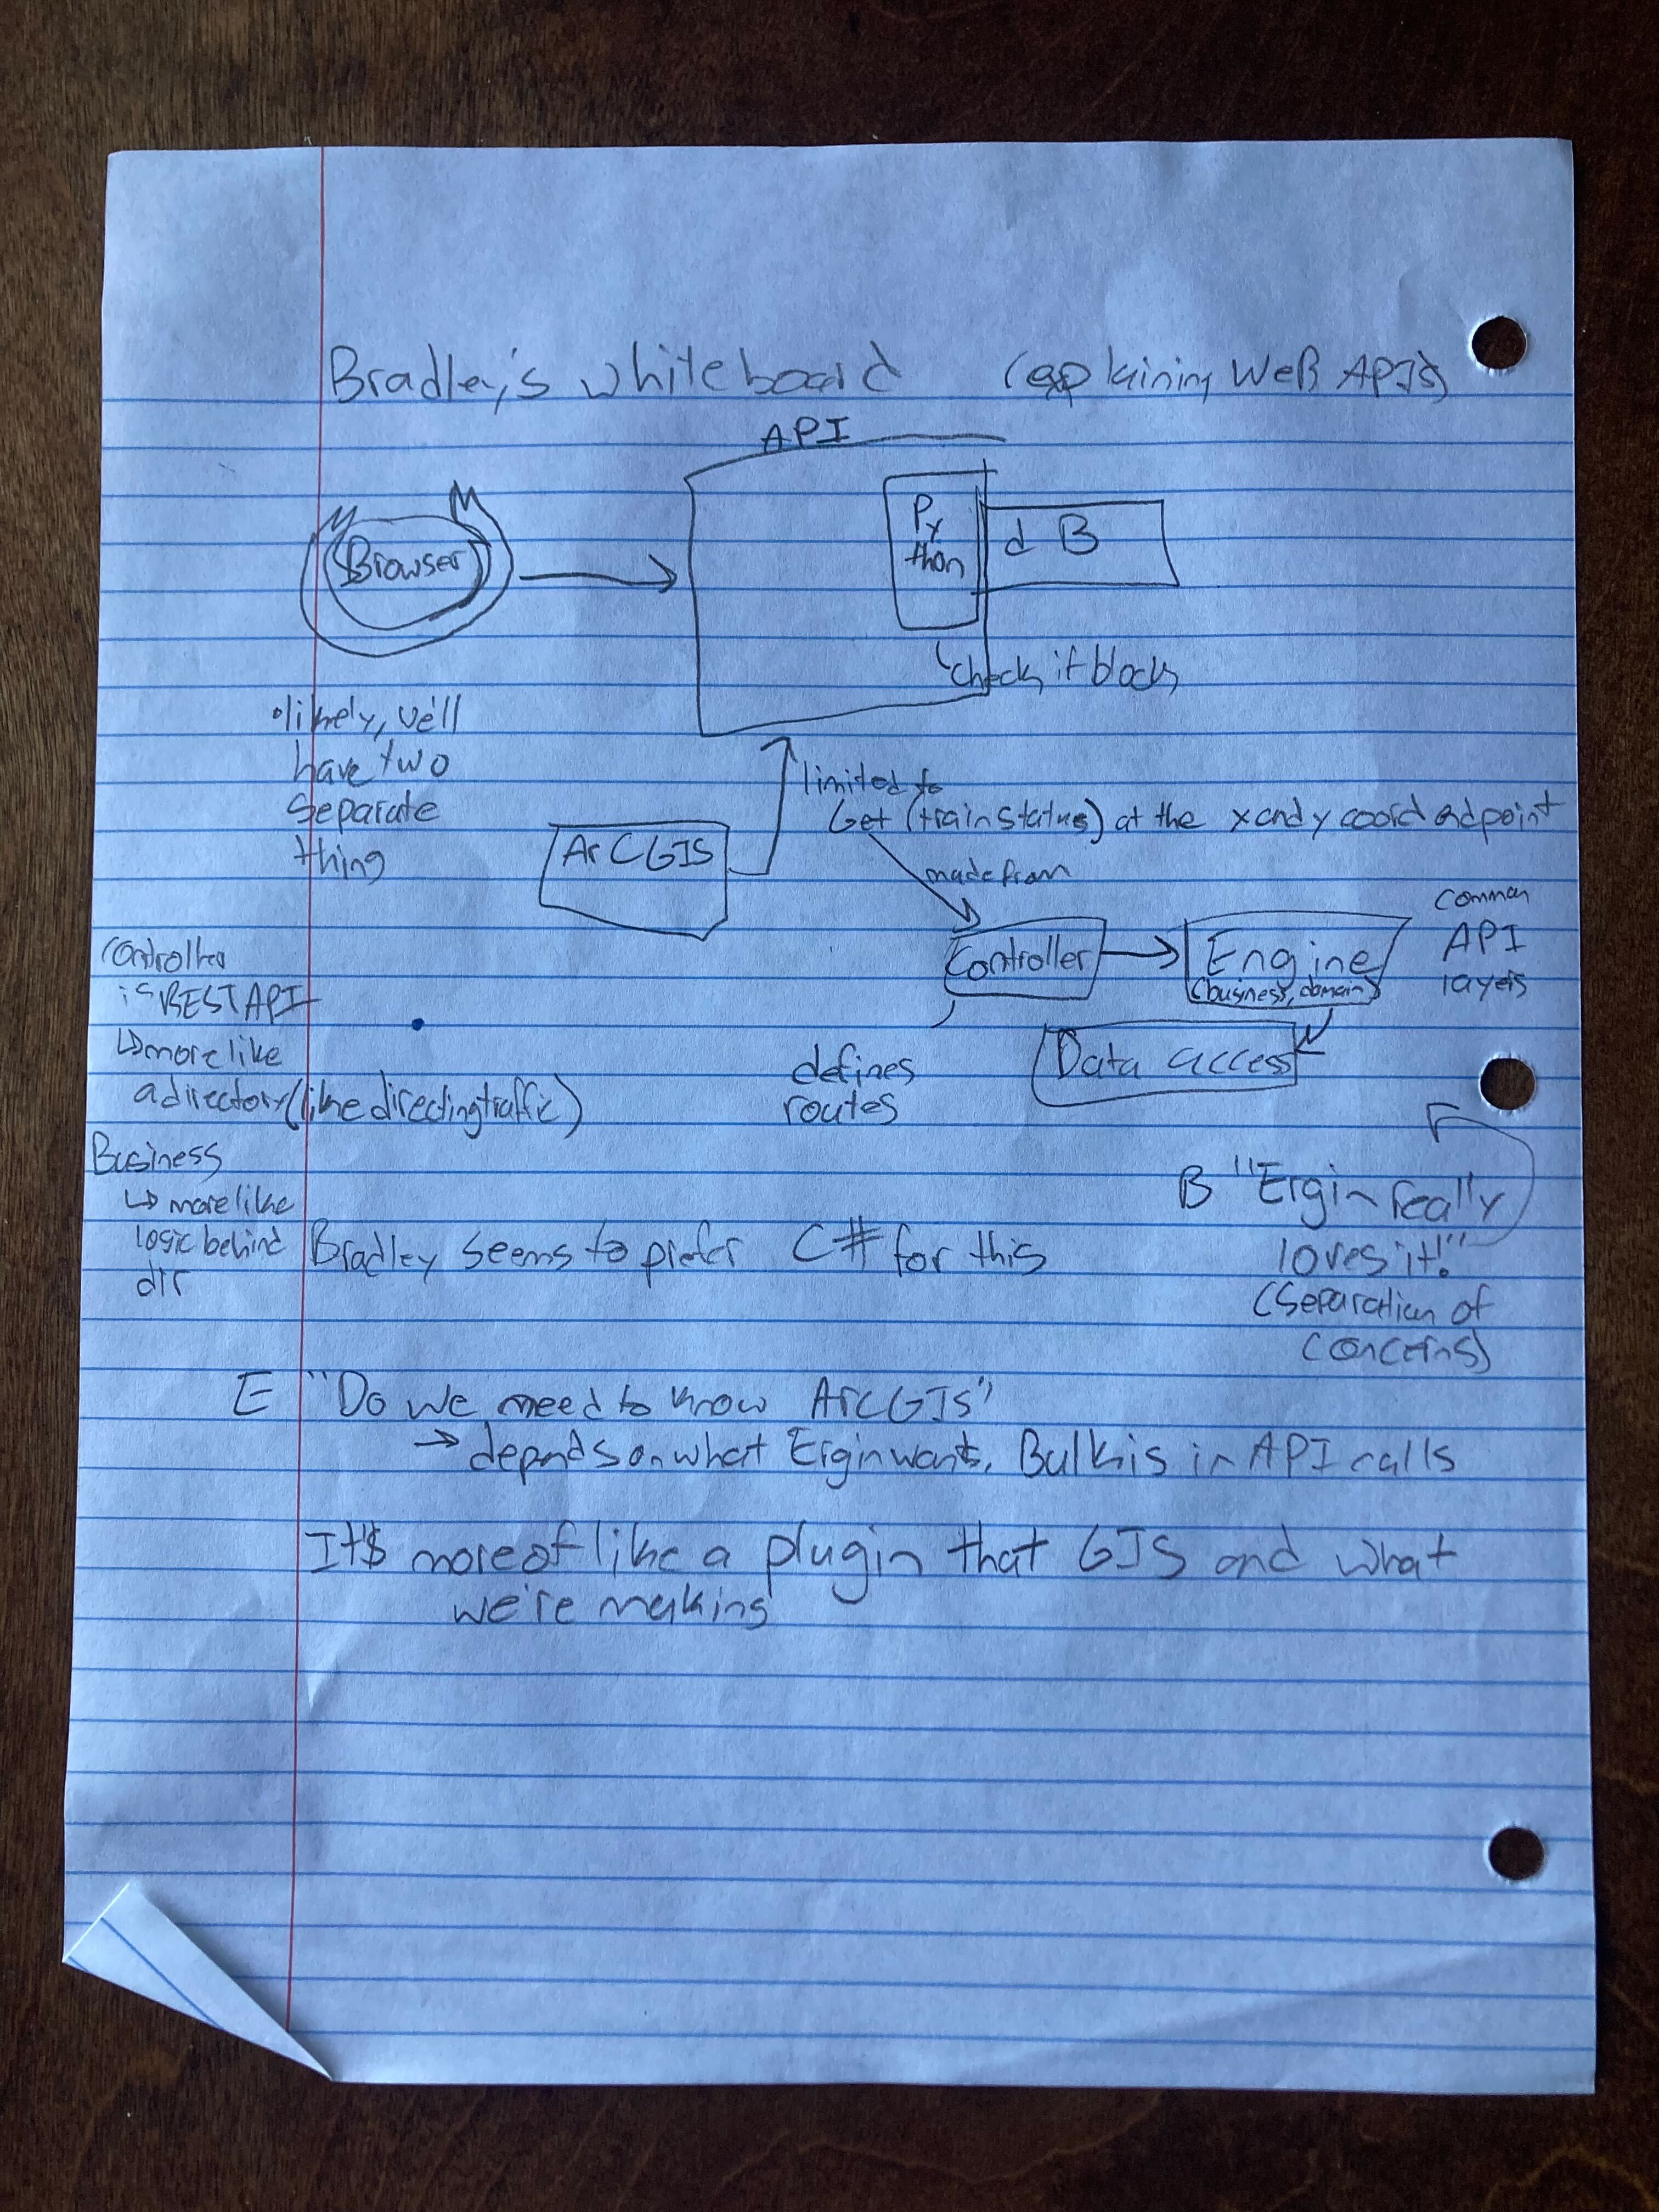 Bradley's whiteboard (explaining WEB APIs)
API
Browser
Py
thon
dB
check if block
•likely, we'll
have two
separate
thing
limited to
Get (train status) at the x and y coord endpoint
ArCGIS
made from
Controller
Engine
(business, domain)
common
API
layers
Data access
defines
routes
Controller
is REST API
↳more like
a directory (like directing traffic)
Business
↳ more like
logic behind
dir
B "Ergin really
loves it!"
(Separation of
concerns)
Bradley seems to prefer C# for this
E "Do we need to know ArcGIS"
→ depends on what Ergin wants, Bulk is in API calls
It's more of like a plugin that GIS and what
we're making